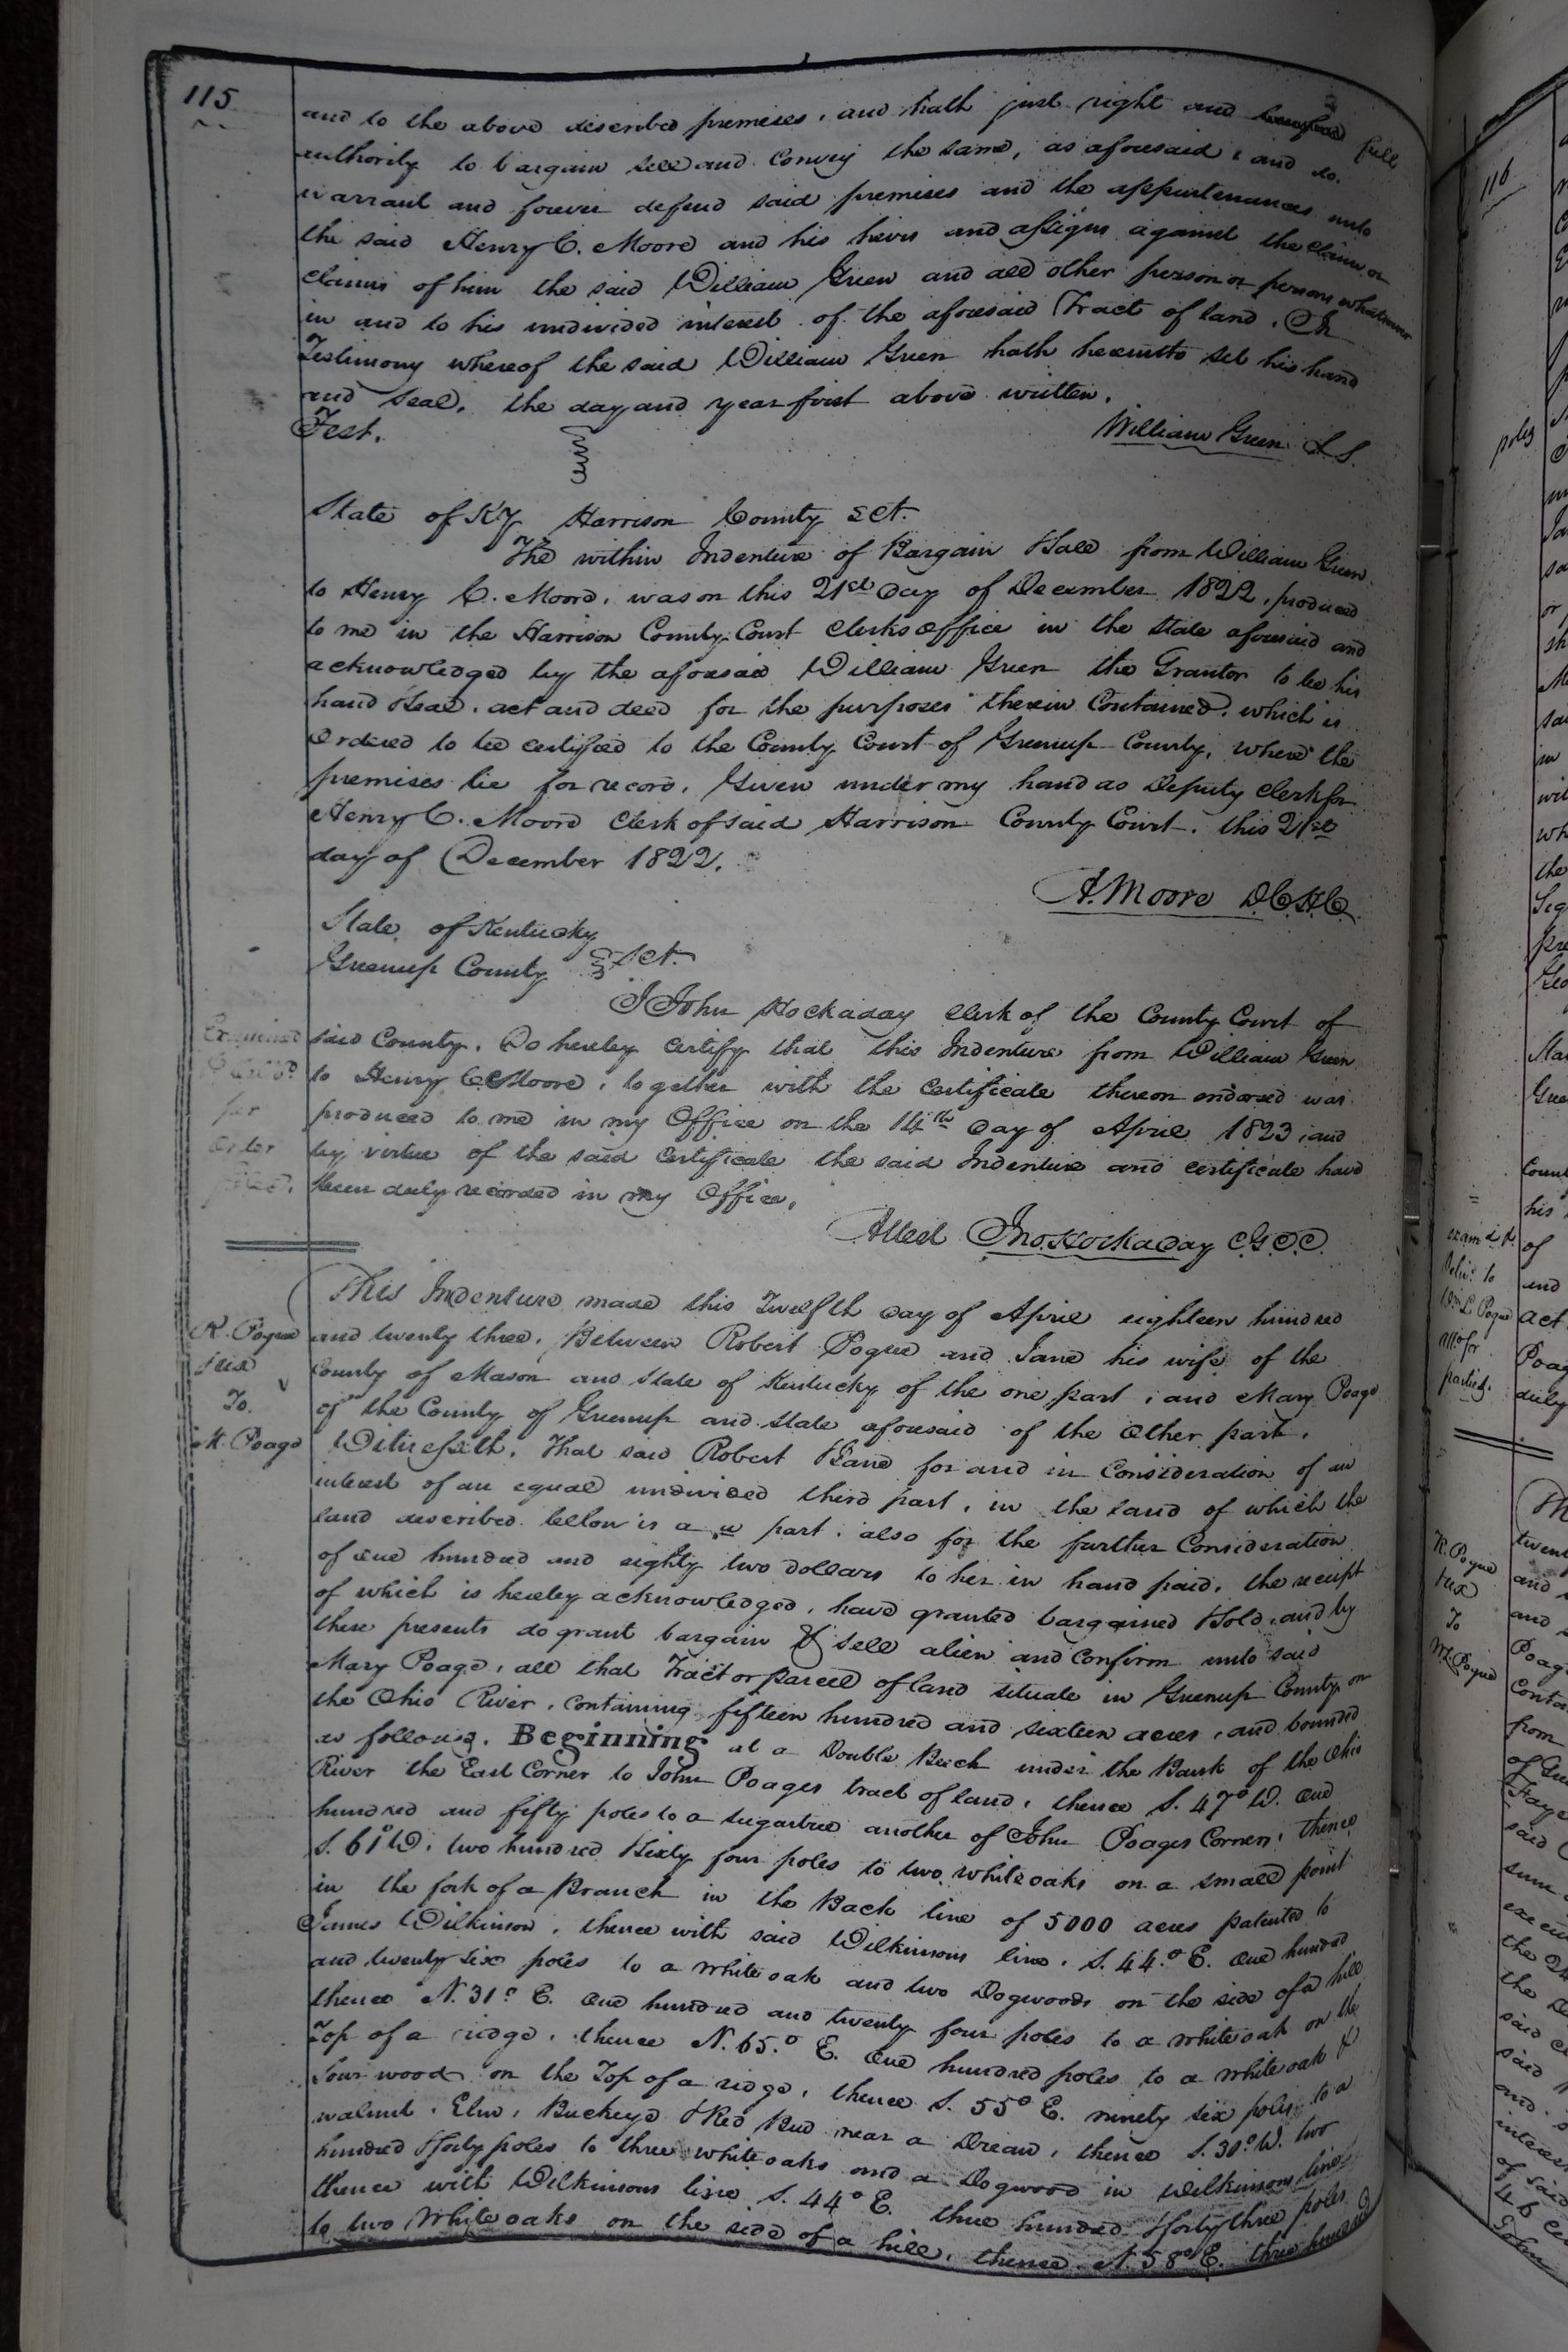 115
and to the above described premises, and hath just right and full
authority to bargain sell and Convey the same, as aforesaid, and do.
warrant and forever defend said premises and the appurtenances unto
the said Henry C. Moore and his heirs and assigns against the claim or
claims of him the said William Green and all other person or persons whatsoever
in and to his undivided interest of the aforesaid Tract of land. In
Testimony whereof the said William Green hath hereunto set his hand
and seal, the day and year first above written.
Test.
William Green L.S.
State of Ky Harrison County Sct.
The within Indenture of Bargain & Sale from William Green
to Henry C. Moore, was on this 21st day of December 1822, produced
to me in the Harrison County Court Clerks office in the state aforesaid and
acknowledged by the aforesaid William Green the Grantor to be his
hand & seal, act and deed for the purposes therein Contained, which is
Ordered to be certified to the County Court of Greenup County, where the
premises lie for record. Given under my hand as Deputy Clerk for
Henry C. Moore Clerk of said Harrison County Court, this 21st
day of December 1822.
A. Moore D.C.H.C.
State of Kentucky
Greenup County Sct.
I John Hockaday Clerk of the County Court of
said County, Do hereby Certify that this Indenture from William Green
to Henry C. Moore, together with the Certificate thereon endorsed was
produced to me in my Office on the 14th day of April 1823, and
by virtue of the said Certificate the said Indenture and certificate have
been duly recorded in my Office.
Examined
per
order
Attest Jno. Hockaday C.G.C.C.
R. Pogue
& ux
To.
M. Poage
This Indenture made this Twelfth day of April eighteen hundred
and twenty three, Between Robert Pogue and Jane his wife of the
County of Mason and State of Kentucky of the one part, and Mary Poage
of the County of Greenup and State aforesaid of the other part.
Witnesseth, That said Robert & Jane for and in Consideration of an
interest of an equal undivided third part, in the land of which the
land described bellow is a part, also for the further Consideration
of one hundred and eighty two dollars to her in hand paid, the receipt
of which is hereby acknowledged, have granted bargained & sold, and by
these presents do grant bargain & sell alien and Confirm unto said
Mary Poage, all that Tract or parcel of land situate in Greenup County on
the Ohio River, containing fifteen hundred and sixteen acres, and bounded
as follows, Beginning at a Double Beech under the Bank of the Ohio
River the East Corner to John Poages tract of land, thence S. 47° W. one
hundred and fifty poles to a sugartree another of John Poages Corners, thence
S. 61° W. two hundred & sixty four poles to two white oaks on a small point
in the fork of a Branch in the Back line of 5000 acres patented to
James Wilkinson, thence with said Wilkinsons line, S. 44.° E. one hundred
and twenty six poles to a white oak and two Dogwoods on the side of a hill
thence N. 31° E. one hundred and twenty four poles to a white oak on the
Top of a ridge, thence N. 65.° E. one hundred poles to a white oak &
Sourwood on the Top of a ridge, thence S. 55° E. ninety six poles to a
walnut, Elm, Buckeye & Red Bud near a Drean, thence S. 30° W. two
hundred & forty poles to three white oaks and a Dogwood in Wilkinsons line
thence with Wilkinsons line S. 44° E. three hundred & forty three poles
to two white oaks on the side of a hill, thence N. 58° E. three hundred
116
poles
exam'd &
Deliv'd to
Wm L. Pogue
att'o for
parties.
R. Pogue
& ux
To
M. Pogue